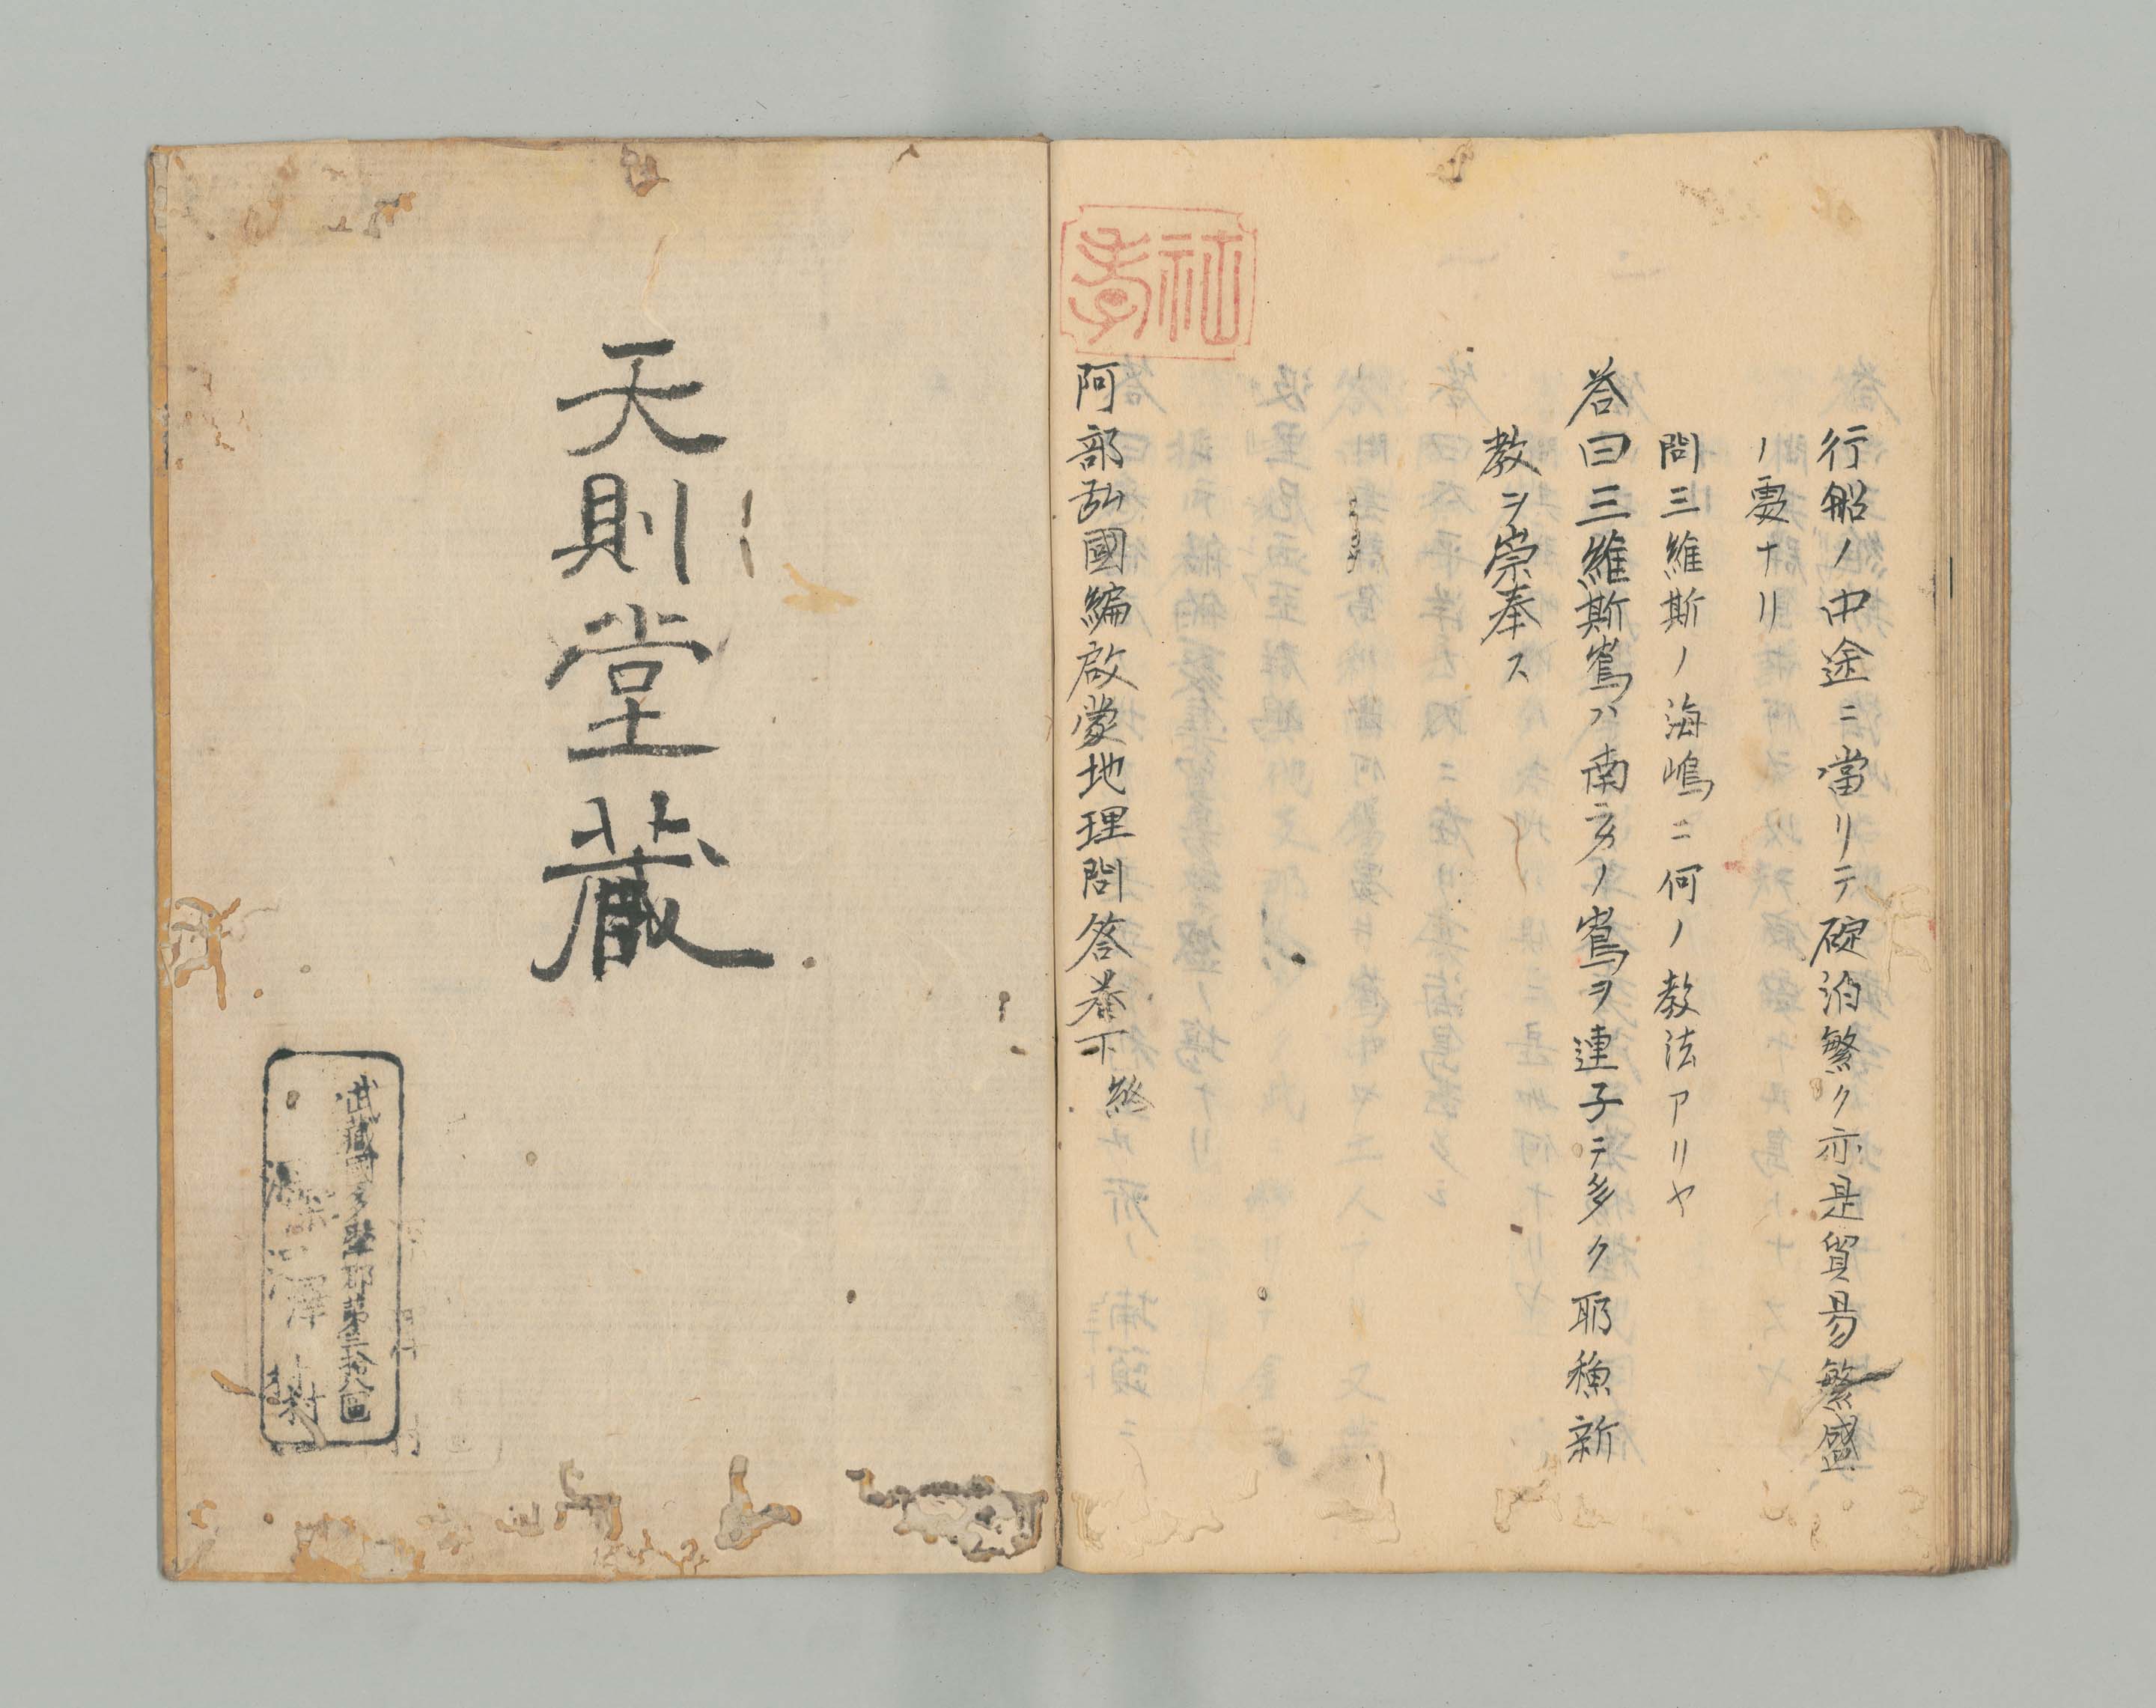 行船ノ中途ニ當リテ碇泊繁ク亦是貿易繁盛
ノ要ナリ
問三維斯ノ海嶋ニ何ノ教法アリヤ
答曰三維斯嶌ハ南方ノ嶌ヲ連子テ多ク耶穌新
教ヲ崇奉ス
阿部弘國編啟蒙地理問答巻下終
天則堂蔵
武藏國多摩郡第三拾八區
深澤村